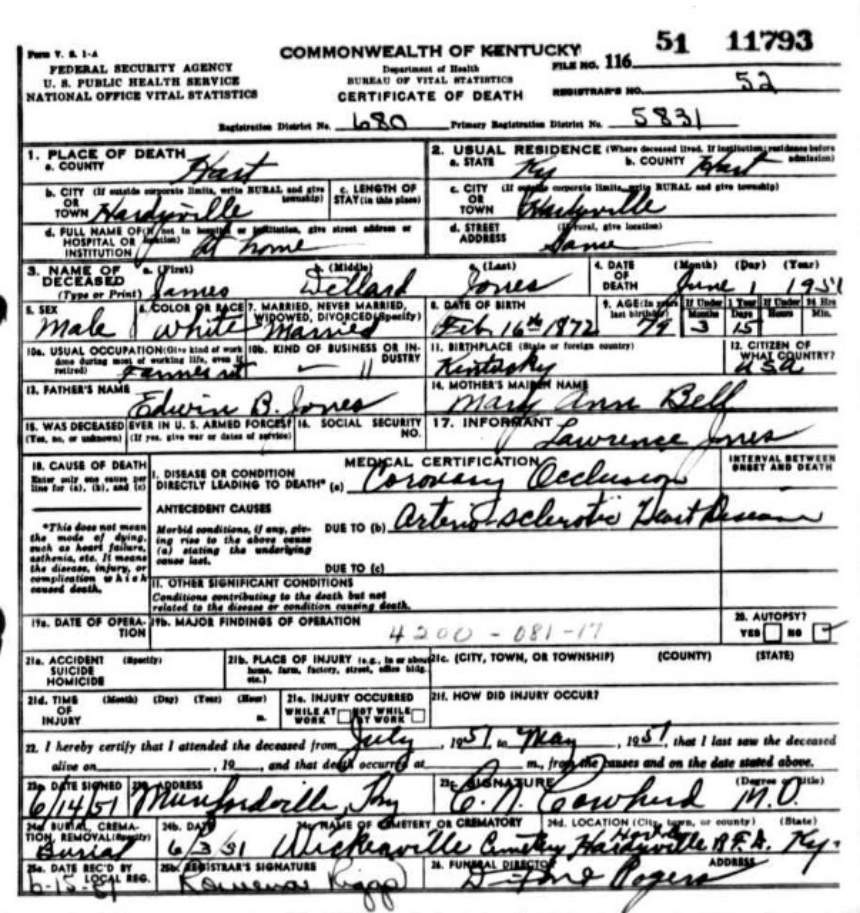 51 11793
Form V. S. 1-A
COMMONWEALTH OF KENTUCKY
FEDERAL SECURITY AGENCY
Department of Health
FILE NO. 116
U. S. PUBLIC HEALTH SERVICE
BUREAU OF VITAL STATISTICS
NATIONAL OFFICE VITAL STATISTICS
CERTIFICATE OF DEATH
REGISTRAR'S NO. 52
Registration District No. 680 Primary Registration District No. 5831
1. PLACE OF DEATH
a. COUNTY Hart
2. USUAL RESIDENCE (Where deceased lived. If institution: residence before admission)
a. STATE Ky b. COUNTY Hart
b. CITY (If outside corporate limits, write RURAL and give township)
OR
TOWN Hardyville
c. LENGTH OF
STAY (in this place)
c. CITY (If outside corporate limits, write RURAL and give township)
OR
TOWN Hardyville
d. FULL NAME OF (If not in hospital or institution, give street address or location)
HOSPITAL OR
INSTITUTION At home
d. STREET (If rural, give location)
ADDRESS Same
3. NAME OF DECEASED
(Type or Print)
a. (First) James
b. (Middle) Dillard
c. (Last) Jones
4. DATE OF DEATH
(Month) (Day) (Year)
June 1 1951
5. SEX
Male
6. COLOR OR RACE
White
7. MARRIED, NEVER MARRIED,
WIDOWED, DIVORCED (Specify)
Married
8. DATE OF BIRTH
Feb 16th 1872
9. AGE (In years last birthday)
79
If Under 1 Year
Months Days
3 15
If Under 24 Hrs
Hours Min.
10a. USUAL OCCUPATION (Give kind of work done during most of working life, even if retired)
10b. KIND OF BUSINESS OR INDUSTRY
11. BIRTHPLACE (State or foreign country)
Kentucky
12. CITIZEN OF WHAT COUNTRY?
USA
13. FATHER'S NAME
Edwin B. Jones
14. MOTHER'S MAIDEN NAME
Mary Ann Bell
15. WAS DECEASED EVER IN U. S. ARMED FORCES?
(Yes, no, or unknown) (If yes, give war or dates of service)
16. SOCIAL SECURITY NO.
17. INFORMANT
Lawrence Jones
18. CAUSE OF DEATH
Enter only one cause per line for (a), (b), and (c)
MEDICAL CERTIFICATION
INTERVAL BETWEEN ONSET AND DEATH
I. DISEASE OR CONDITION
DIRECTLY LEADING TO DEATH* (a) Coronary Occlusion
*This does not mean the mode of dying, such as heart failure, asthenia, etc. It means the disease, injury, or complication which caused death.
ANTECEDENT CAUSES
Morbid conditions, if any, giving rise to the above cause (a) stating the underlying cause last.
DUE TO (b) Arterio-sclerotic Heart Disease
DUE TO (c)
II. OTHER SIGNIFICANT CONDITIONS
Conditions contributing to the death but not
related to the disease or condition causing death.
19a. DATE OF OPERATION
19b. MAJOR FINDINGS OF OPERATION
4200-081-17
20. AUTOPSY?
YES NO
21a. ACCIDENT (Specify)
SUICIDE
HOMICIDE
21b. PLACE OF INJURY (e.g., in or about home, farm, factory, street, office bldg. etc.)
21c. (CITY, TOWN, OR TOWNSHIP) (COUNTY) (STATE)
21d. TIME (Month) (Day) (Year) (Hour)
OF
INJURY m.
21e. INJURY OCCURRED
WHILE AT WORK NOT WHILE AT WORK
21f. HOW DID INJURY OCCUR?
22. I hereby certify that I attended the deceased from July, 1951, to May, 1951, that I last saw the deceased
alive on , 19 , and that death occurred at m., from the causes and on the date stated above.
23a DATE SIGNED
6/14/51
23b. ADDRESS
Munfordville, Ky
23c. SIGNATURE (Degree or title)
C. N. Cowherd M.D.
24a BURIAL, CREMATION, REMOVAL (Specify)
Burial
24b. DATE
6/3/51
24c NAME OF CEMETERY OR CREMATORY
Cemetery
24d. LOCATION (City, town, or county) (State)
Hardyville Ky.
25a. DATE REC'D BY LOCAL REG.
6-15-51
25b. REGISTRAR'S SIGNATURE
26. FUNERAL DIRECTOR ADDRESS
Rogers